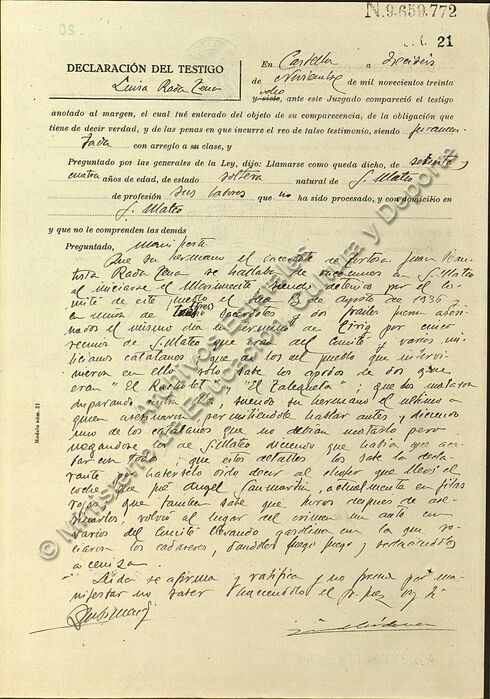 N.9.659.772
21
DECLARACIÓN DEL TESTIGO
Luisa Rada Tena
En Castellon a dieciseis
de Noviembre de mil novecientos treinta
y siete, ocho ante este Juzgado compareció el testigo
anotado al margen, el cual fué enterado del objeto de su comparecencia, de la obligación que
tiene de decir verdad, y de las penas en que incurre el reo de falso testimonio, siendo juramen-
tada con arreglo a su clase, y
Preguntado por las generales de la Ley, dijo: Llamarse como queda dicho, de setenta y
cuatro años de edad, de estado soltera natural de S. Mateo
de profesión sus labores que no ha sido procesado, y con domicilio en
S. Mateo
y que no le comprenden las demás
Preguntado, manifiesta
Que su hermano el sacerdote de Tortosa Juan Bau-
tista Rada Tena se hallaba de vacaciones en S. Mateo
al iniciarse el Movimiento siendo detenido por el Co-
mité de este pueblo el dia 13 de agosto de 1936
en union de tres sacerdotes y dos frailes siendo asesi-
nados el mismo dia en termino de Cirig por cinco
vecinos de S. Mateo que eran del Comité y varios mi-
licianos catalanes que de los del pueblo que intervi-
nieron en ello solo sabe los apodos de dos que
eran "El y "El ; que los mataron
disparando contra ellos, siendo su hermano el ultimo a
quien asesinaron permitiendole hablar antes, y diciendo
uno de los catalanes que no debian matarlo pero
negandose los de S. Mateo diciendo que habia que aca-
bar con todos; que estos detalles los sabe la decla-
rante por haberselo oido decir al chofer que llevó el
coche que fué Angel Sanmartin, actualmente en filas
rojas; que tambien sabe que horas despues de ase-
sinarlos, volvió al lugar del crimen un auto con
varios del Comité llevando gasolina con la que ro-
ciaron los cadaveres, dandoles fuego y reduciendolos
a ceniza.
Leida se afirma y ratifica y no firma por ma-
nifestar no saber haciendolo el Sr. Juez doy fé
Modelo núm. 21
© Archivos Estatales
Ministerio de Educación, Cultura y Deporte